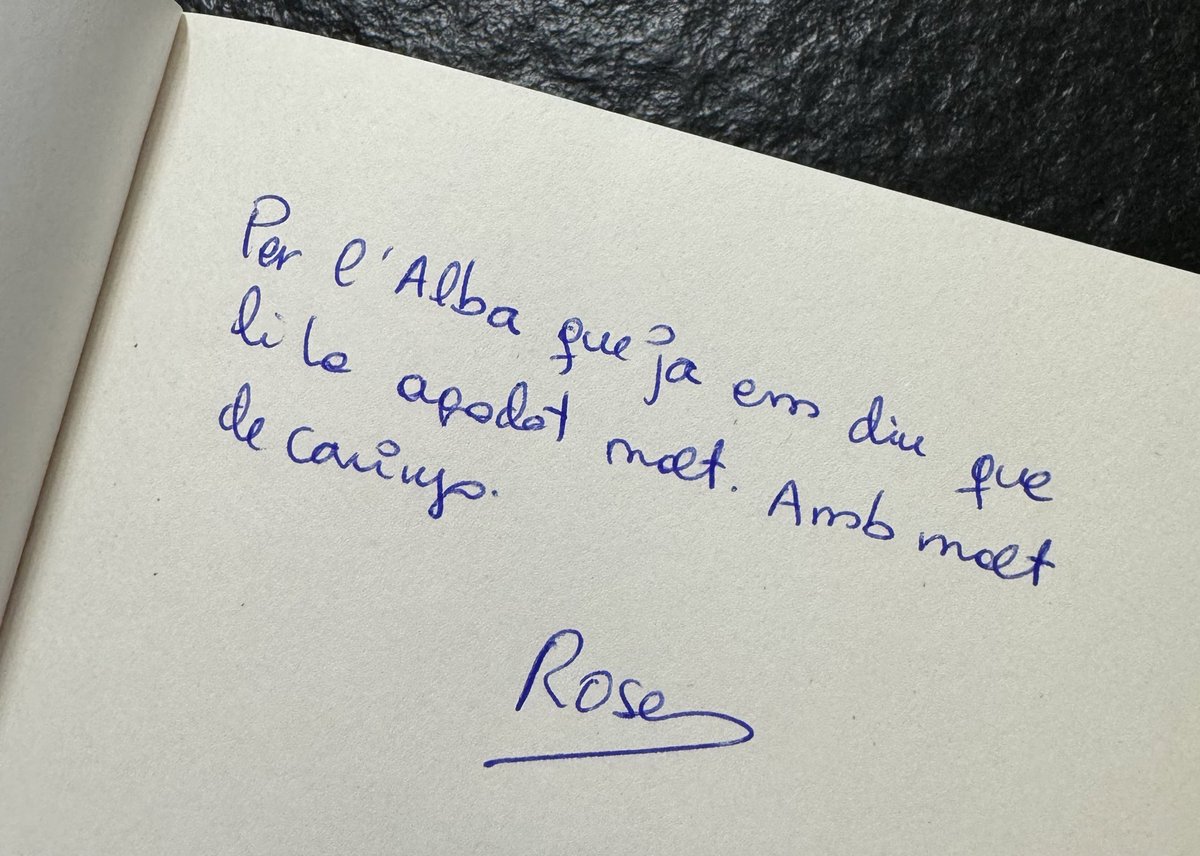 Per l'Alba que ja em diu que
li ha agradat molt. Amb molt
de carinyo.
Rosa